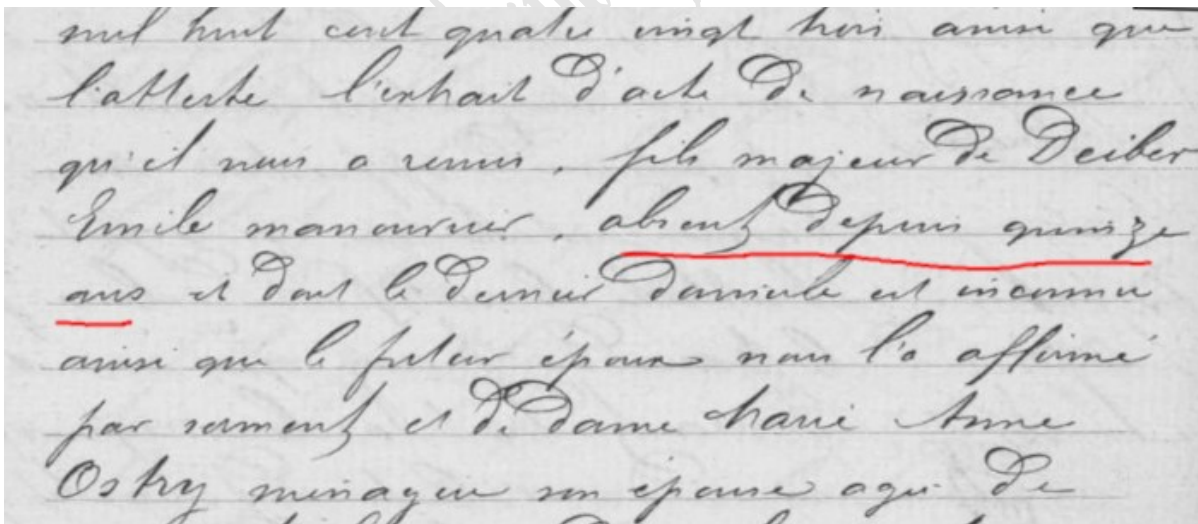 mil huit cent quatre vingt trois ainsi que
l'atteste l'extrait d'acte de naissance
qu'il nous a remis, fils majeur de Deiber
Emile manouvrier, absent depuis quinze
ans et dont le dernier domicile est inconnu
ainsi que le futur époux nous l'a affirmé
par serment et de dame Marie Anne
Ostry ménagère son épouse agée de